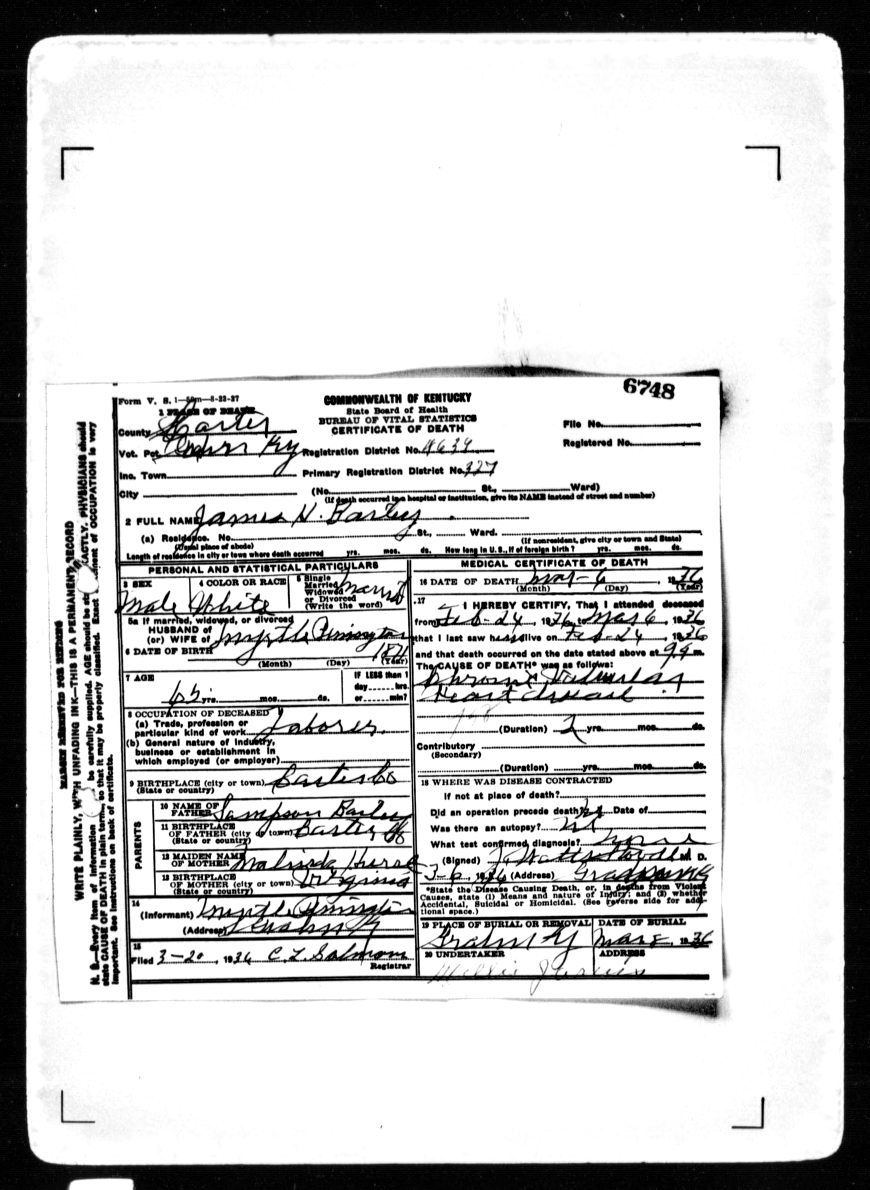 6748
Form V. S. 1—50m—8-23-27
COMMONWEALTH OF KENTUCKY
State Board of Health
BUREAU OF VITAL STATISTICS
CERTIFICATE OF DEATH
1 PLACE OF DEATH
County Carter
File No.
Registered No.
Vot. Pct. Ky Registration District No.
Inc. Town Primary Registration District No. 327
City (No. St., Ward)
(If death occurred in a hospital or institution, give its NAME instead of street and number)
2 FULL NAME James H.
(a) Residence. No. St., Ward.
(Usual place of abode) (If nonresident, give city or town and State)
Length of residence in city or town where death occurred yrs. mos. ds. How long in U. S., if of foreign birth? yrs. mos. ds.
PERSONAL AND STATISTICAL PARTICULARS
3 SEX
Male
4 COLOR OR RACE
White
5 Single
Married
Widowed
or Divorced
(Write the word)
5a If married, widowed, or divorced
HUSBAND of
(or) WIFE of Myrtle Pennington
6 DATE OF BIRTH 1871
(Month) (Day) (Year)
7 AGE
65 yrs. mos. ds.
IF LESS than 1
day hrs.
or min?
8 OCCUPATION OF DECEASED
(a) Trade, profession or
particular kind of work Laborer
(b) General nature of industry,
business or establishment in
which employed (or employer)
9 BIRTHPLACE (city or town) Carter Co
(State or country)
PARENTS
10 NAME OF
FATHER Sampson
11 BIRTHPLACE
OF FATHER (city or town) Carter
(State or country)
12 MAIDEN NAME
OF MOTHER Malinda
13 BIRTHPLACE
OF MOTHER (city or town) Virginia
(State or country)
14
(Informant) Myrtle Pennington
(Address) Ky
15
Filed 3-20 1936 C. L. Salmon
Registrar
MEDICAL CERTIFICATE OF DEATH
16 DATE OF DEATH Mar-6 1936
(Month) (Day) (Year)
17
I HEREBY CERTIFY, That I attended deceased
from Feb-24, 1936, to Mar 6, 1936
that I last saw h alive on Feb-24, 1936
and that death occurred on the date stated above at m.
The CAUSE OF DEATH* was as follows:
Chronic Valvular
Heart disease
(Duration) 2 yrs. mos. ds.
Contributory
(Secondary)
(Duration) yrs. mos. ds.
18 WHERE WAS DISEASE CONTRACTED
If not at place of death?
Did an operation precede death? Date of
Was there an autopsy? no
What test confirmed diagnosis?
(Signed) M. D.
3-6 1936 (Address)
*State the Disease Causing Death, or, in deaths from Violent
Causes, state (1) Means and nature of Injury; and (2) whether
Accidental, Suicidal or Homicidal. (See reverse side for addi-
tional space.)
19 PLACE OF BURIAL OR REMOVAL
Grahn Ky
DATE OF BURIAL
Mar 8 1936
20 UNDERTAKER
ADDRESS
MARGIN RESERVED FOR BINDING
WRITE PLAINLY, WITH UNFADING INK—THIS IS A PERMANENT RECORD
N. B.—Every item of information be carefully supplied. AGE should be EXACTLY. PHYSICIANS should
state CAUSE OF DEATH in plain terms, so that it may be properly classified. Exact of OCCUPATION is very
important. See instructions on back of certificate.